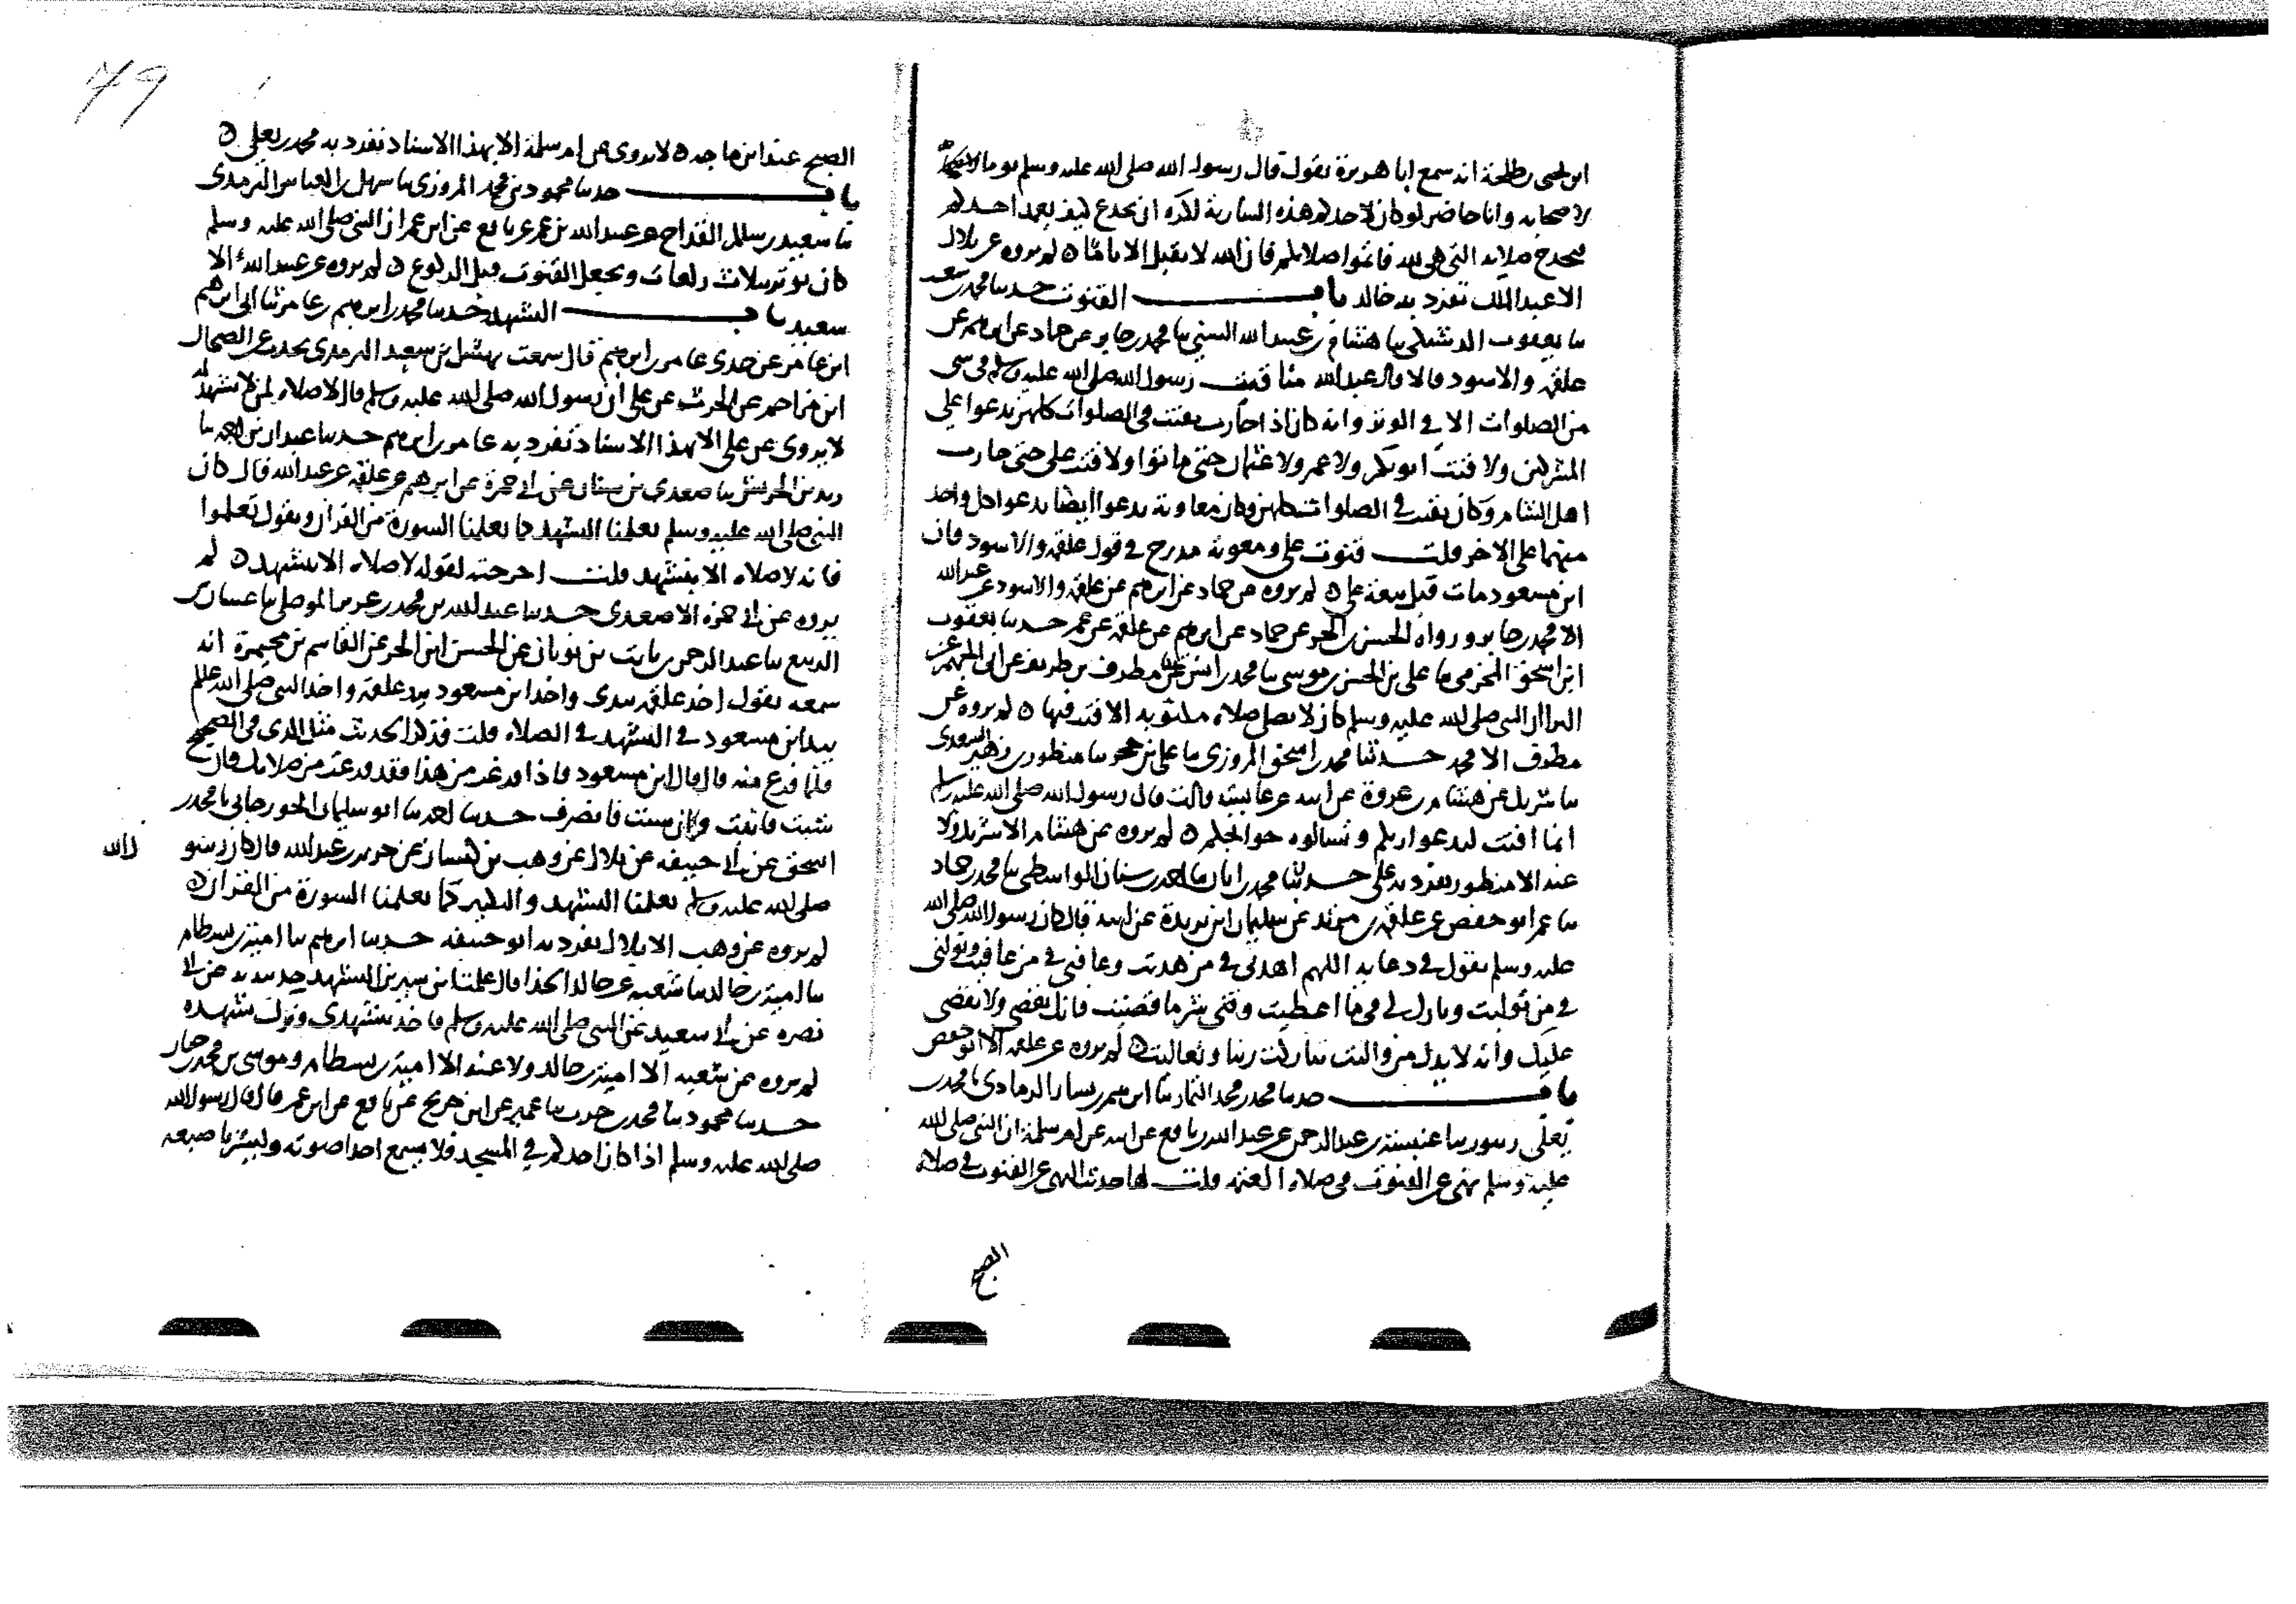 ابن يحيى بن طلحة انه سمع ابا هريرة يقول قال رسول الله صلى الله عليه وسلم يوما
لاصحابه وانا حاضر لو كان لاحدكم هذه السارية لكره ان تجدع كيف يعمد احدكم
فيجدع صلاته التي هي لله فاتموا صلاتكم فان الله لا يقبل الا تاما ه لم يروه عن بلال
الا عبد الملك تفرد به خالد باب القنوت حدثنا محمد بن سعد
ثنا يعقوب الدشتكي ثنا هشام بن عبيد الله السني ثنا محمد بن جابر عن حماد عن ابراهيم عن
علقمة والاسود قالا قال عبد الله ما قنت رسول الله صلى الله عليه وسلم في شي
من الصلوات الا في الوتر وانه كان اذا حارب يقنت في الصلوات كلهن يدعوا على
المشركين ولا قنت ابو بكر ولا عمر ولا عثمان حتى ماتوا ولا قنت علي حتى حارب
اهل الشام وكان يقنت في الصلوات كلهن وكان معاوية يدعوا ايضا يدعوا كل واحد
منهما على الاخر قلت قنوت علي ومعوية مدرج في قول علقمة والاسود فان
ابن مسعود مات قبل بيعة علي ه لم يروه عن حماد عن ابراهيم عن علقمة والاسود عن عبد الله
الا محمد بن جابر ورواه الحسن بن الحر عن حماد عن ابراهيم عن علقمة عن عمر حدثنا يعقوب
ابن اسحق المخرمي ثنا علي بن الحسن بن موسى ثنا محمد بن انس عن مطرف بن طريف عن ابي الجهم عن
البراء ان النبي صلى الله عليه وسلم كان لا يصلي صلاة مكتوبة الا قنت فيها ه لم يروه عن
مطرف الا محمد حدثنا محمد بن اسحق المروزي ثنا علي بن حجر ثنا منظور بن زهير السعدي
ثنا شريك عن هشام بن عروة عن ابيه عن عايشة قالت قال رسول الله صلى الله عليه وسلم
انما اقنت لتدعوا ربكم وتسالوه حوائجكم ه لم يروه عن هشام الا شريك ولا
عنه الا منظور تفرد به علي حدثنا محمد بن ابان ثنا احمد بن سنان الواسطي ثنا محمد بن حماد
ثنا عمر ابو حفص عن علقمة بن مرثد عن سليمان ابن بريدة عن ابيه قال كان رسول الله صلى الله
عليه وسلم يقول في دعايه اللهم اهدني في من هديت وعافني في من عافيت وتولني
في من توليت وبارك لي في ما اعطيت وقني شر ما قضيت فانك تقضي ولا يقضى
عليك وانه لا يذل من واليت تباركت ربنا وتعاليت ه لم يروه عن علقمة الا ابو حفص
باب حدثنا محمد بن محمد التمار ثنا ابراهيم بن بشار الرمادي ثنا محمد بن
يعلى زنبور ثنا عنبسة بن عبد الرحمن عن عبد الله بن نافع عن ابيه عن ام سلمة ان النبي صلى الله
عليه وسلم نهى عن القنوت في صلاة العتمة قلت لها حديث النهي عن القنوت في صلاة
الصبح
الصبح عند ابن ماجه ه لا يروى عن ام سلمة الا بهذا الاسناد تفرد به محمد بن يعلى ه
باب حدثنا محمود بن محمد المروزي ثنا سهل بن العباس الترمذي
ثنا سعيد بن سالم القداح عن عبيد الله بن عمر عن نافع عن ابن عمر ان النبي صلى الله عليه وسلم
كان يوتر بثلاث ركعات ويجعل القنوت قبل الركوع ه لم يروه عن عبيد الله الا
سعيد باب التشهد حدثنا محمد بن ابراهيم بن عامر ثنا ابي ابراهيم
ابن عامر عن جدي عامر بن ابراهيم قال سمعت نهشل بن سعيد الترمذي يحدث عن الضحاك
ابن مزاحم عن الحرث عن علي ان رسول الله صلى الله عليه وسلم قال لا صلاة لمن لا تشهد له
لا يروى عن علي الا بهذا الاسناد تفرد به عامر بن ابراهيم حدثنا عبدان بن احمد ثنا
زيد بن الحريش ثنا صغدي بن سنان عن ابي حمزة عن ابراهيم عن علقمة عن عبد الله قال كان
النبي صلى الله عليه وسلم يعلمنا التشهد كما يعلمنا السورة من القران ويقول تعلموا
فانه لا صلاة الا بتشهد قلت اخرجته لقوله لا صلاة الا بتشهد ه لم
يروه عن ابي حمزة الا صغدي حدثنا عبد الله بن محمد بن عزيز الموصلي ثنا غسان بن
الربيع ثنا عبد الرحمن بن ثابت بن ثوبان عن الحسن ابن الحر عن القاسم بن مخيمرة انه
سمعه يقول اخذ علقمة بيدي واخذ ابن مسعود بيد علقمة واخذ النبي صلى الله عليه وسلم
بيد ابن مسعود في التشهد في الصلاة قلت فذكر الحديث مثل الذي في الصحيح
فلما فرغ منه قال قال ابن مسعود فاذا فرغت من هذا فقد فرغت من صلاتك فان
شيت فاثبت وان شيت فانصرف حدثنا احمد ثنا ابو سليمان الجوزجاني ثنا محمد بن
اسحق عن ابي حنيفة عن بلال عن وهب بن كيسان عن جابر بن عبد الله قال كان رسو
ل الله
صلى الله عليه وسلم يعلمنا التشهد والتكبير كما يعلمنا السورة من القران ه
لم يروه عن وهب الا بلال تفرد به ابو حنيفة حدثنا ابراهيم ثنا امية بن بسطام
ثنا امية بن خالد ثنا شعبة عن خالد الحذا قال علمنا ابن سيرين التشهد حديثه عن ابي
نضرة عن ابي سعيد عن النبي صلى الله عليه وسلم فاخذ بتشهدي وترك تشهده
لم يروه عن شعبة الا امية بن خالد ولا عنه الا امية بن بسطام وموسى بن محمد بن حيان
حدثنا محمود ثنا محمد بن حرب ثنا عمير عن ابن جريج عن نافع عن ابن عمر قال قال رسول الله
صلى الله عليه وسلم اذا كان احدكم في المسجد فلا يسمع احدا صوته وليشر باصبعه